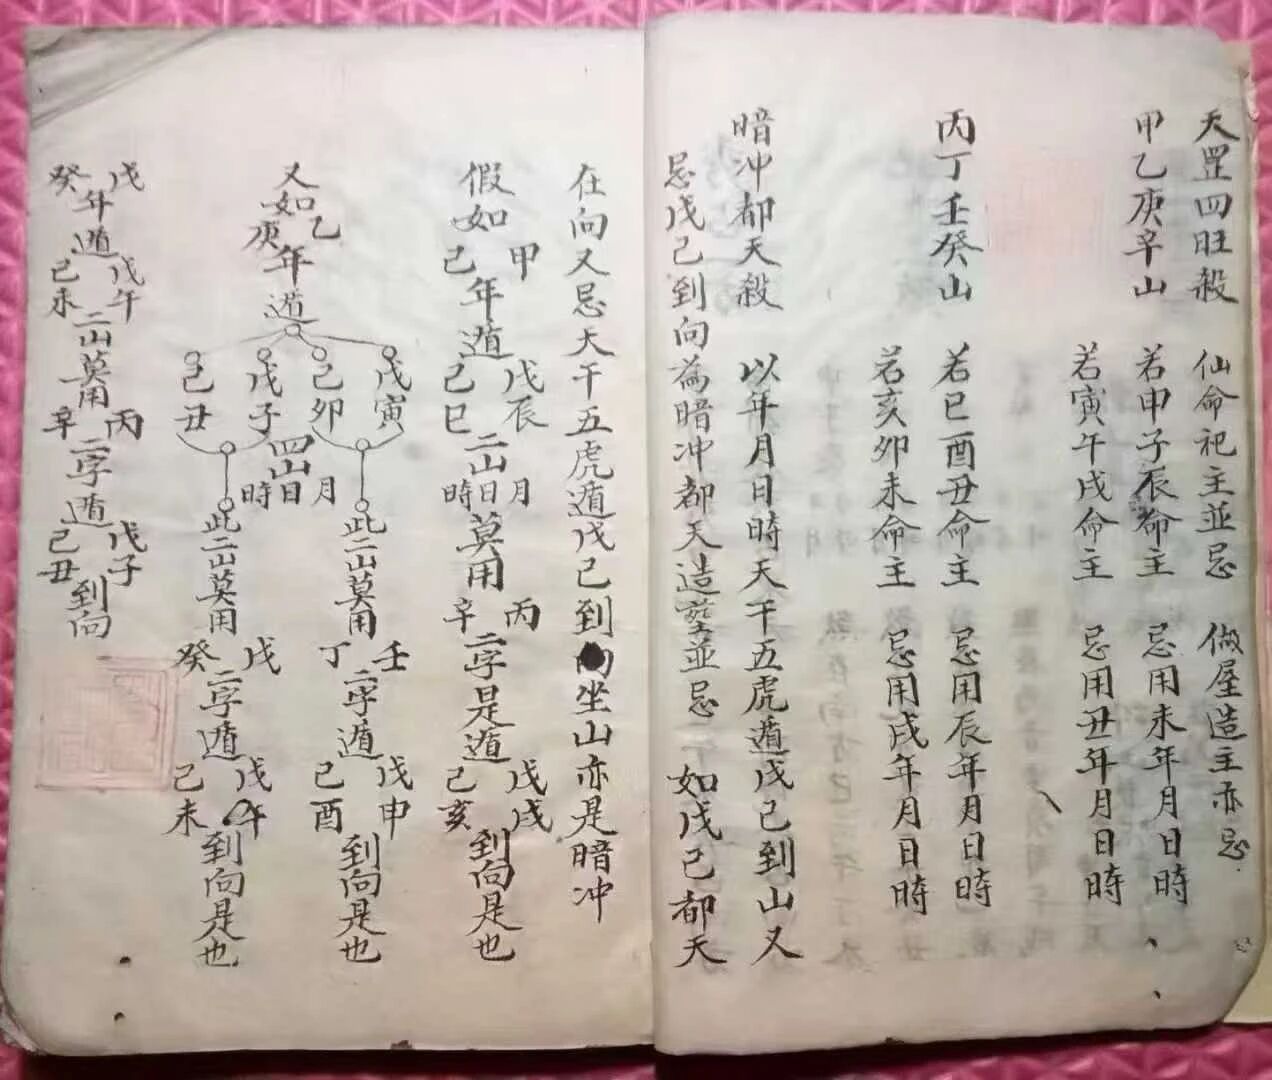 天罡四旺殺 仙命祀主並忌 做屋造主亦忌
甲乙庚辛山 若申子辰命主 忌用未年月日時
若寅午戌命主 忌用丑年月日時
丙丁壬癸山 若巳酉丑命主 忌用辰年月日時
若亥卯未命主 忌用戌年月日時
暗冲都天殺 以年月日時天干五虎遁戊己到山又
忌戊己到向為暗冲都天造塟並忌 如戊己都天
在向又忌天干五虎遁戊己到坐山亦是暗冲
假如甲己年遁戊辰己巳二山月日時莫用丙辛二字是遁戊戌己亥到向是也
又如乙庚年遁
戊寅己卯戊子己丑
四山月日時
此二山莫用壬丁二字遁戊申己酉到向是也
此二山莫用戊癸二字遁戊午己未到向是也
戊癸年遁戊午己未二山莫用丙辛二字遁戊子己丑到向